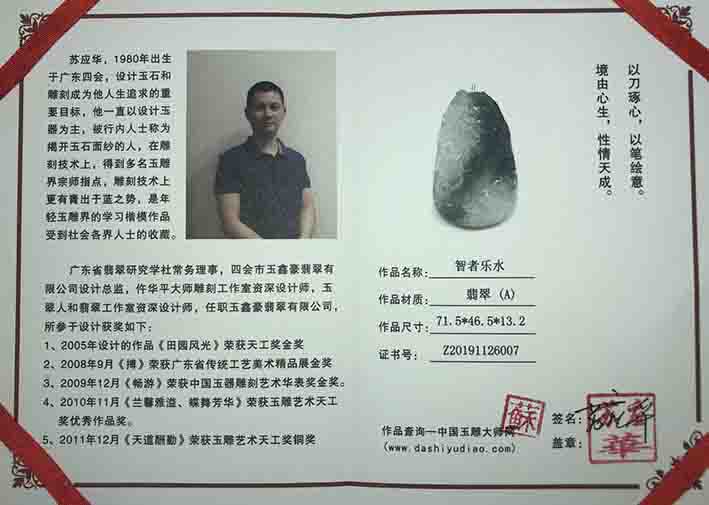 苏应华,1980年出生
于广东四会,设计玉石和
雕刻成为他人生追求的重
要目标,他一直以设计玉
器为主,被行内人士称为
揭开玉石面纱的人,在雕
刻技术上,得到多名玉雕
界宗师指点,雕刻技术上
更有青出于蓝之势,是年
轻玉雕界的学习楷模作品
受到社会各界人士的收藏。
广东省翡翠研究学社常务理事,四会市玉鑫豪翡翠有
限公司设计总监,仵华平大师雕刻工作室资深设计师,玉
翠人和翡翠工作室资深设计师,任职玉鑫豪翡翠有限公司,
所参于设计获奖如下:
1、2005年设计的作品《田园风光》荣获天工奖金奖
2、2008年9月《搏》荣获广东省传统工艺美术精品展金奖
3、2009年12月《畅游》荣获中国玉器雕刻艺术华表奖金奖。
4、2010年11月《兰馨雅溢、蝶舞芳华》荣获玉雕艺术天工
奖优秀作品奖。
5、2011年12月《天道酬勤》荣获玉雕艺术天工奖铜奖
以刀琢心,以笔绘意。
境由心生,性情天成。
作品名称: 智者乐水
作品材质: 翡翠 (A)
作品尺寸: 71.5*46.5*13.2
证书号: Z20191126007
作品查询—中国玉雕大师网
(www.dashiyudiao.com)
签名:
盖章: